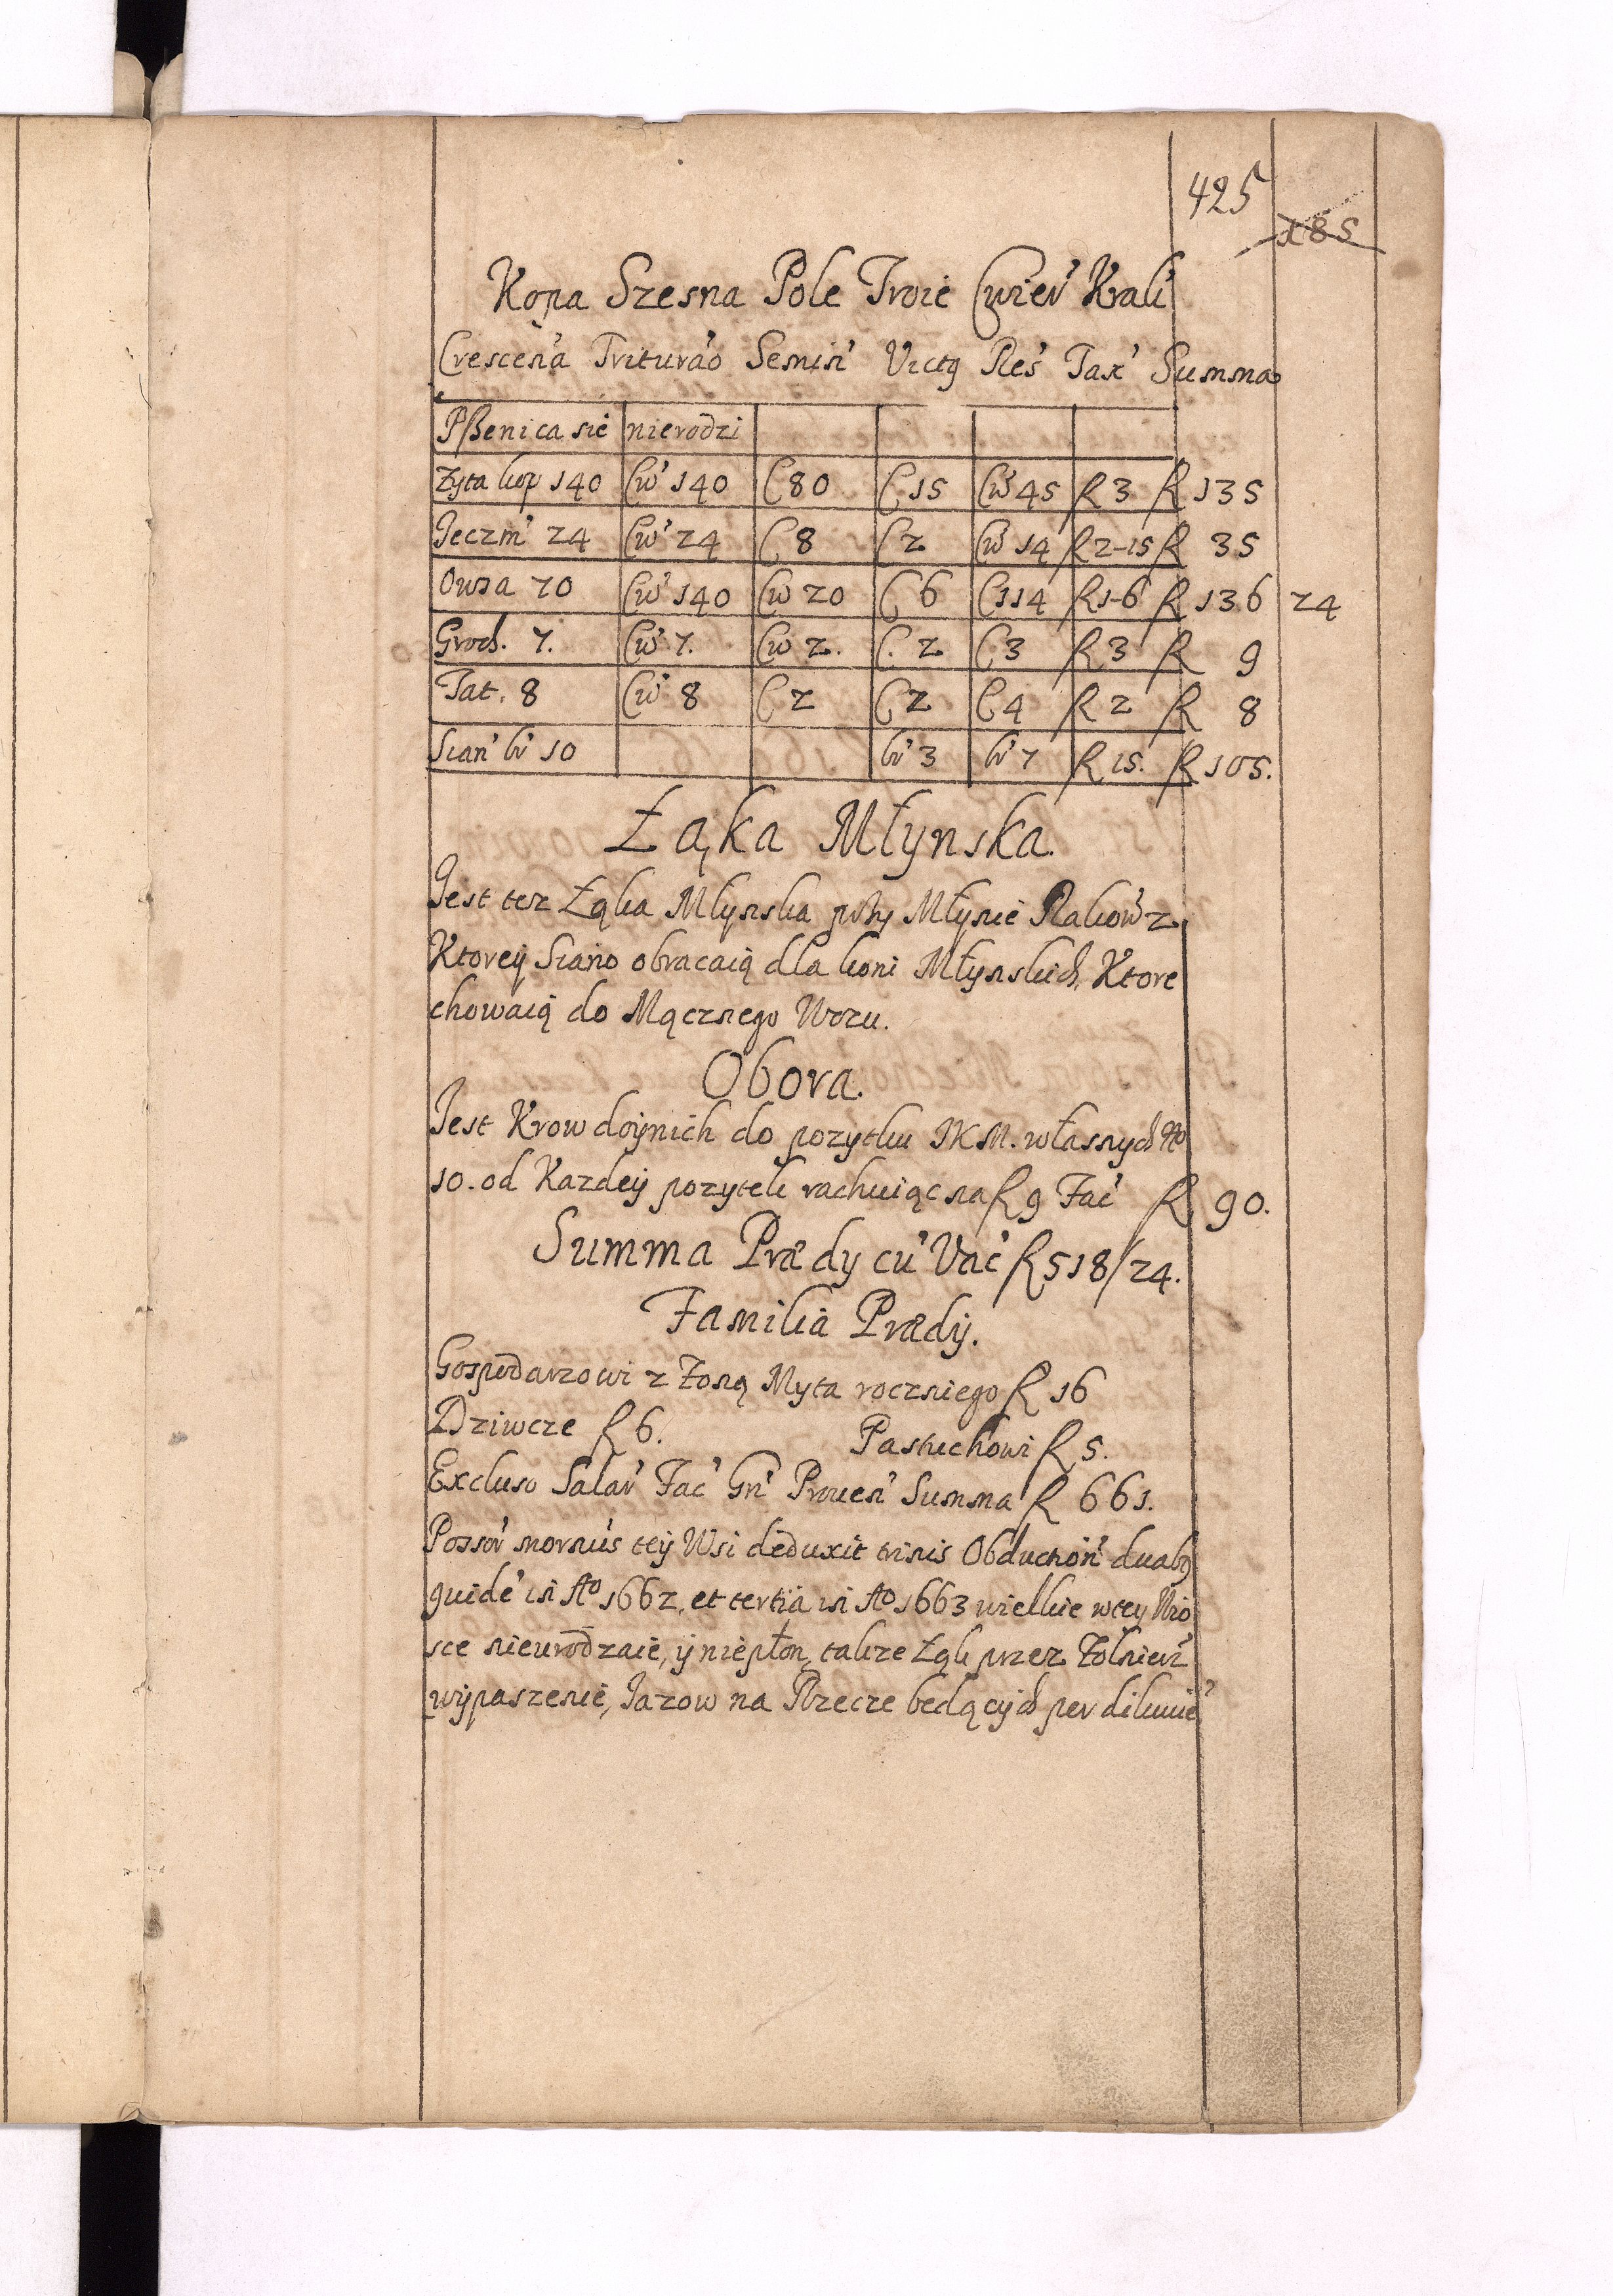 425
185
Kopa Szesna Pole Troie Cwier' Krak'
Crescen'a Triturao' Semin' Victg Res' Tax' Summa
Pßenica sie nierodzi
Zyta kop 140 Cw' 140 C 80 C 15 Cw' 45 R 3 R 135
Jeczm' 24 Cw' 24 C 8 C 2 Cw 14 R 2-15 R 35
Owsa 70 Cw' 140 Cw 20 C 6 C 114 R 1-6 R 136 24
Groch. 7. Cw' 7. Cw 2. C. 2 C 3 R 3 R 9
Tat. 8 Cw' 8 C 2 C 2 C 4 R 2 R 8
Sian' br' 10 br' 3 br' 7 R 15. R 105.
Łąka Młynska.
Jest tez Łąka Młynska przy Młynie Rakow' z
Ktorey Siano obracaią dla koni Młynskich, Ktore
chowaią do Mącznego Wozu.
Obora.
Jest Krow doynich do pozytku JKM. własnych No
10. od Kazdey pozytek rachuiąc na R 9 Fac' R 90.
Summa Prædy cu' Vac' R 518/24.
Familia Prædij.
Gospodarzowi z Żoną Myta roczniego R 16
Dziwcze R 6. Pastuchowi R 5.
Excluso Salar' Fac' Gn' Prouen' Summa R 661.
Possor' mornus' tey Wsi deduxit trinis Obduction' duabg
quide' in Ao 1662, et tertia in Ao 1663 wielkie w tey Wio
sce nieurodzaie, y niepłon, takze Łąk przez Zołnierz'
wypaszenie, Jazow na Rzecze bedących per diluuie'